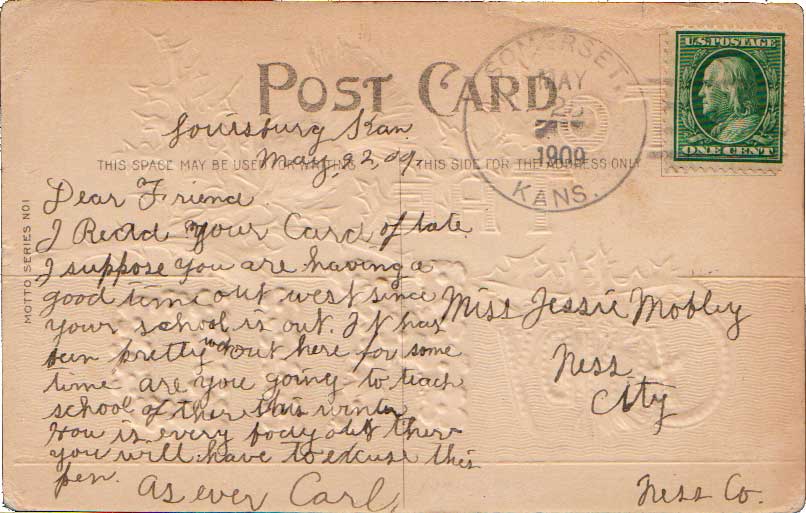 POST CARD
THIS SPACE MAY BE USED FOR WRITING
THIS SIDE FOR THE ADDRESS ONLY
MOTTO SERIES NO1
U.S. POSTAGE
ONE CENT
SOMERSET,
MAY
1909
KANS.
Louisburg Kan
May, 22, 09.
Dear Friend
I Recd your Card of late
I suppose you are having a
good time out west since
your school is out. It has
been pretty out here for some
time are you going to teach
school of ther this winter
How is every body out ther
you will have to excuse this
pen.
As ever Carl,
Miss Jessie Mobley
Ness
City
Ness Co.